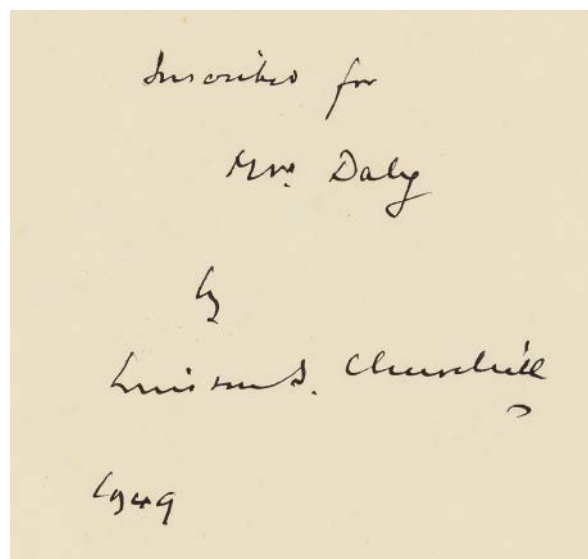 Inscribed for
Mr. Daly
by
Winston S. Churchill
1949